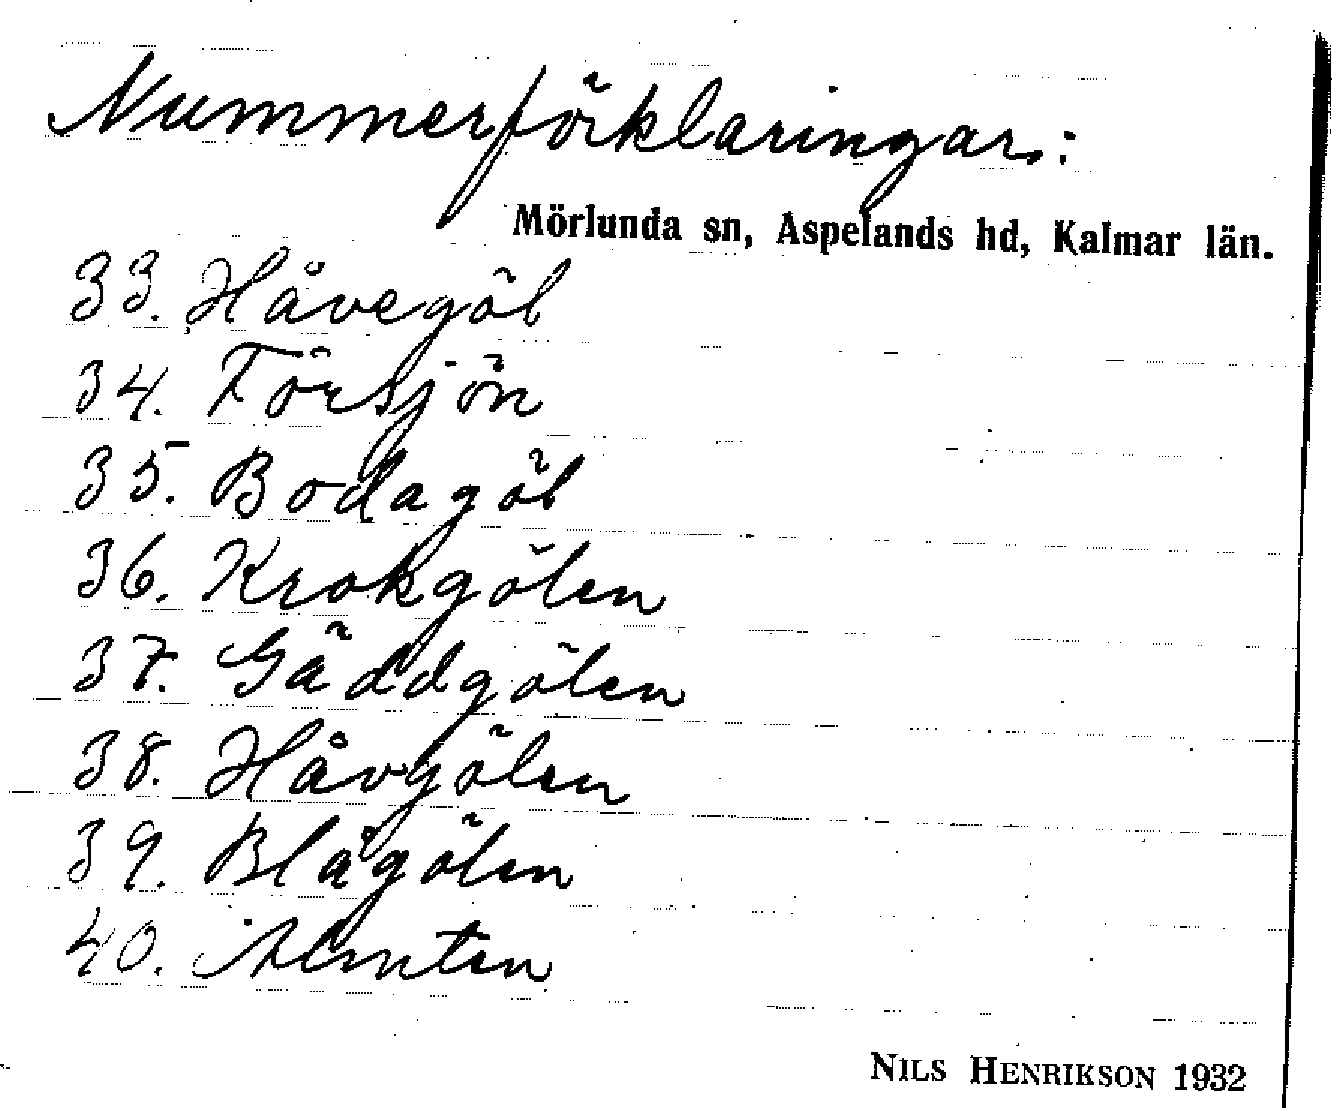 Nummerförklaringar:
Mörlunda sn, Aspelands hd, Kalmar län.
33. Håvegöl
34. Försjön
35. Bodagöl
36. Krokgölen
37. Gäddgölen
38. Håvgölen
39. Blågölen
40. Almten
NILS HENRIKSON 1932